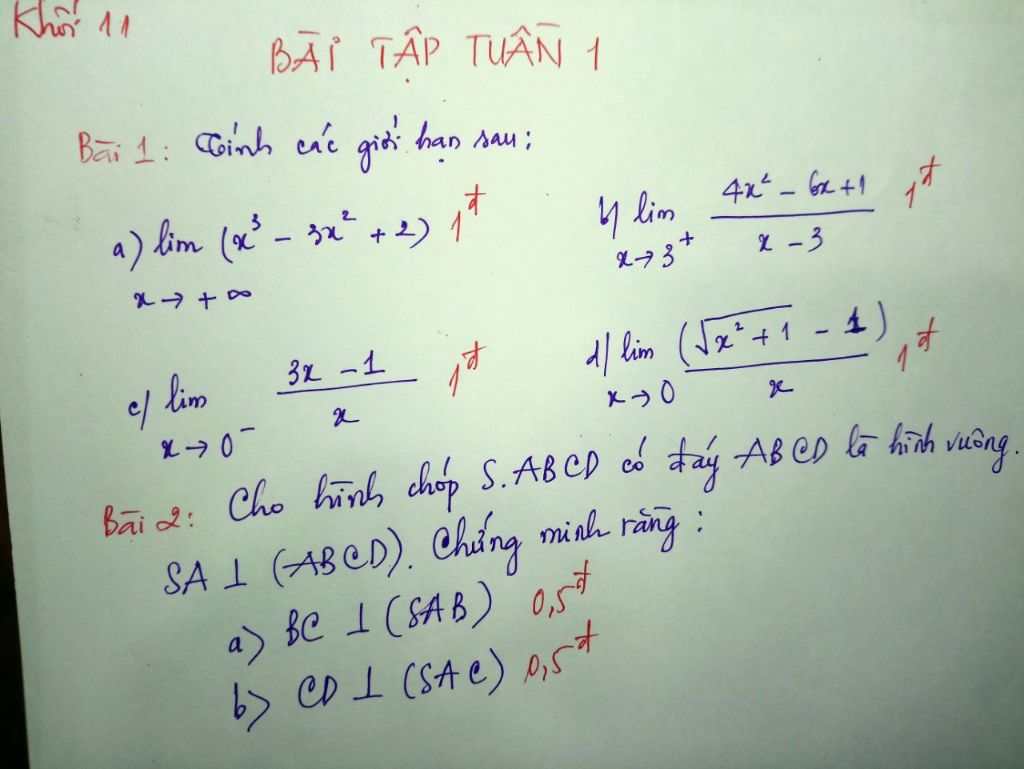 Khối 11
BÀI TẬP TUẦN 1
Bài 1: Tính các giới hạn sau:
a) lim (x³ - 3x² + 2) 1đ
x → + ∞
b/ lim (4x² - 6x + 1)/(x - 3) 1đ
x → 3⁺
c/ lim (3x - 1)/x 1đ
x → 0⁻
d/ lim (√(x² + 1) - 1)/x 1đ
x → 0
Bài 2: Cho hình chóp S.ABCD có đáy ABCD là hình vuông.
SA ⊥ (ABCD). Chứng minh rằng:
a) BC ⊥ (SAB) 0,5đ
b) CD ⊥ (SAC) 0,5đ